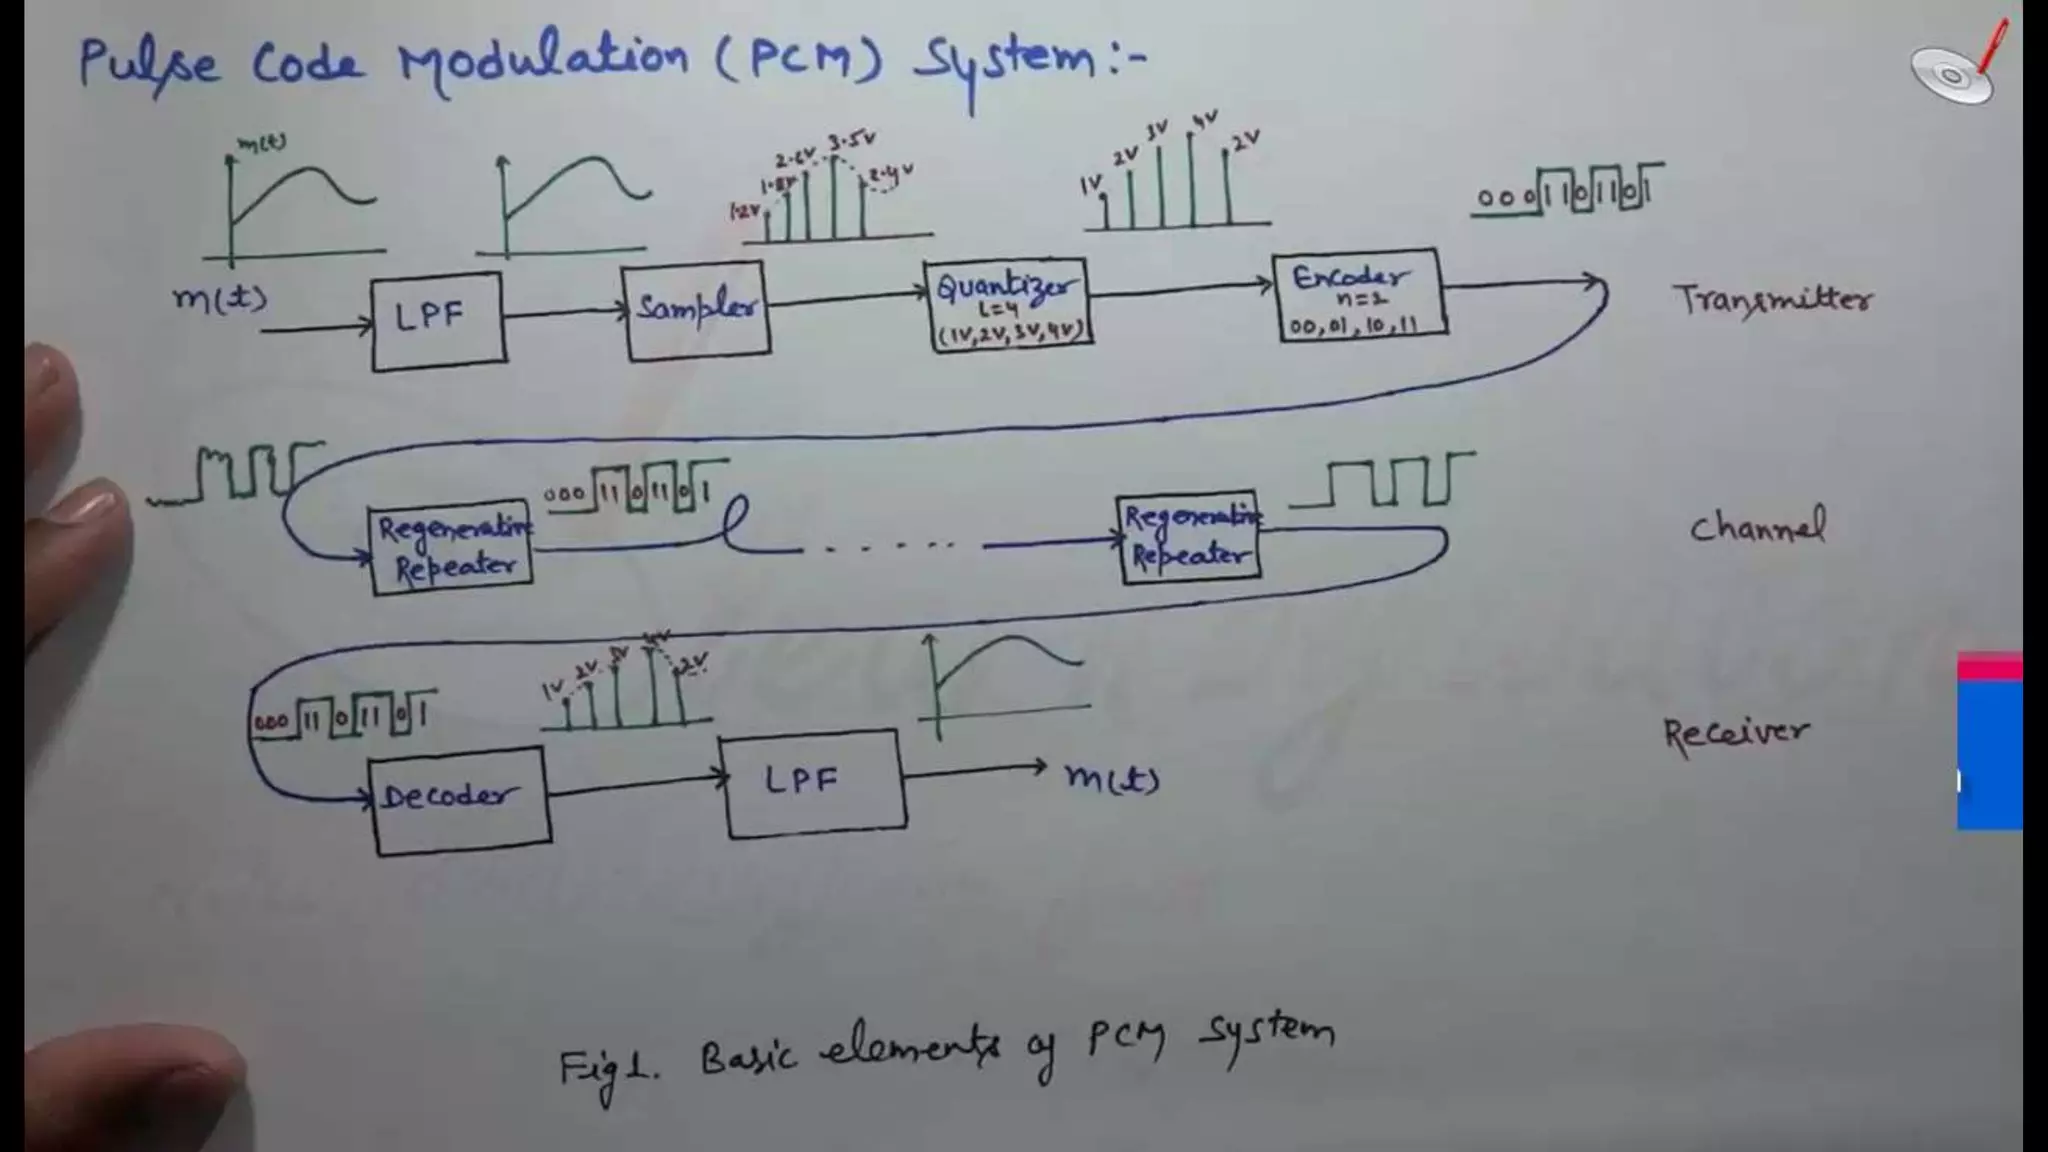 Pulse Code Modulation (PCM) System:-
m(t)
1.2V 1.8V 2.6V 3.5V 2.4V
1V 2V 3V 4V 2V
0 0 0 1 1 0 1 1 0 1
m(t)
LPF
Sampler
Quantizer
L=4
(1V, 2V, 3V, 4V)
Encoder
n=2
00, 01, 10, 11
Transmitter
Regenerative
Repeater
000 11 0 11 0 1
Regenerative
Repeater
Channel
000 11 0 11 0 1
1V 2V 3V 4V 2V
Decoder
LPF
m(t)
Receiver
Fig 1. Basic elements of PCM System